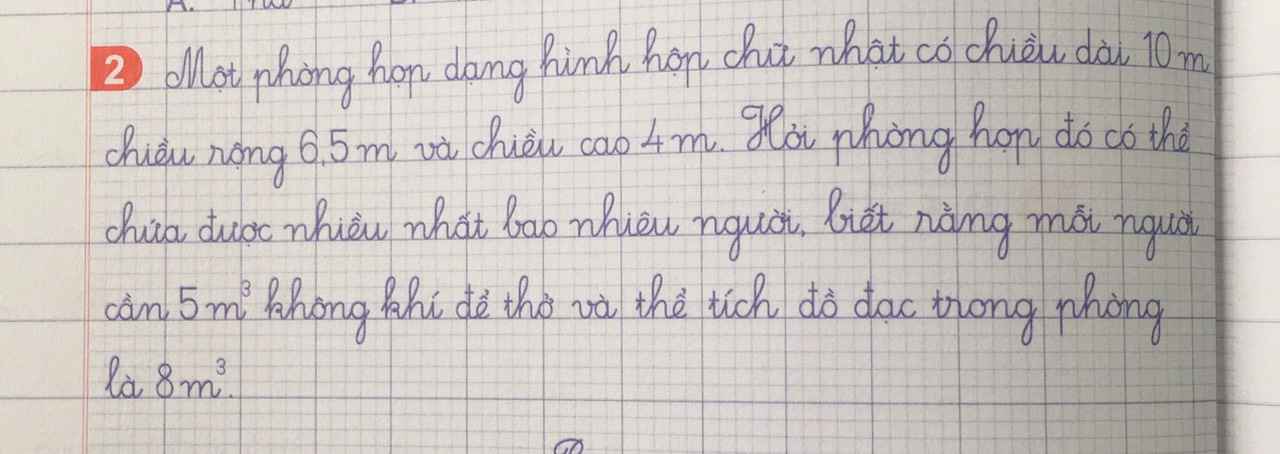 2 Một phòng họp dạng hình hộp chữ nhật có chiều dài 10 m
chiều rộng 6,5 m và chiều cao 4 m. Hỏi phòng họp đó có thể
chứa được nhiều nhất bao nhiêu người, biết rằng mỗi người
cần 5 m³ không khí để thở và thể tích đồ đạc trong phòng
là 8 m³.